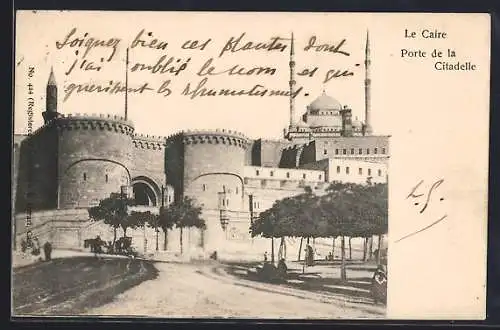 Soignez bien ces plantes dont
j'ai oublié le nom et qui
guerissent les rhumatismes
Le Caire
Porte de la
Citadelle
No. 414